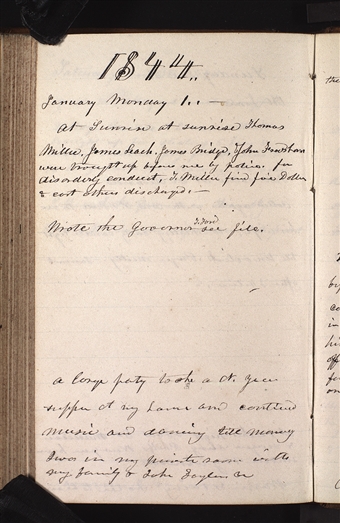 1844.
January Monday 1..
At Sunrise at sunrise Thomas
Miller, James Leach, James Bridge, & John Frodsham
were brought up before me by police for
disorderly conduct, T. Miller fined five Dollars
& cost others discharged.
Wrote the Governor T. Ford see file.
a large party to the a N. Year
supper at my house and continued
music and dancing till morning
I was in my private room with
my family & John Taylor
the